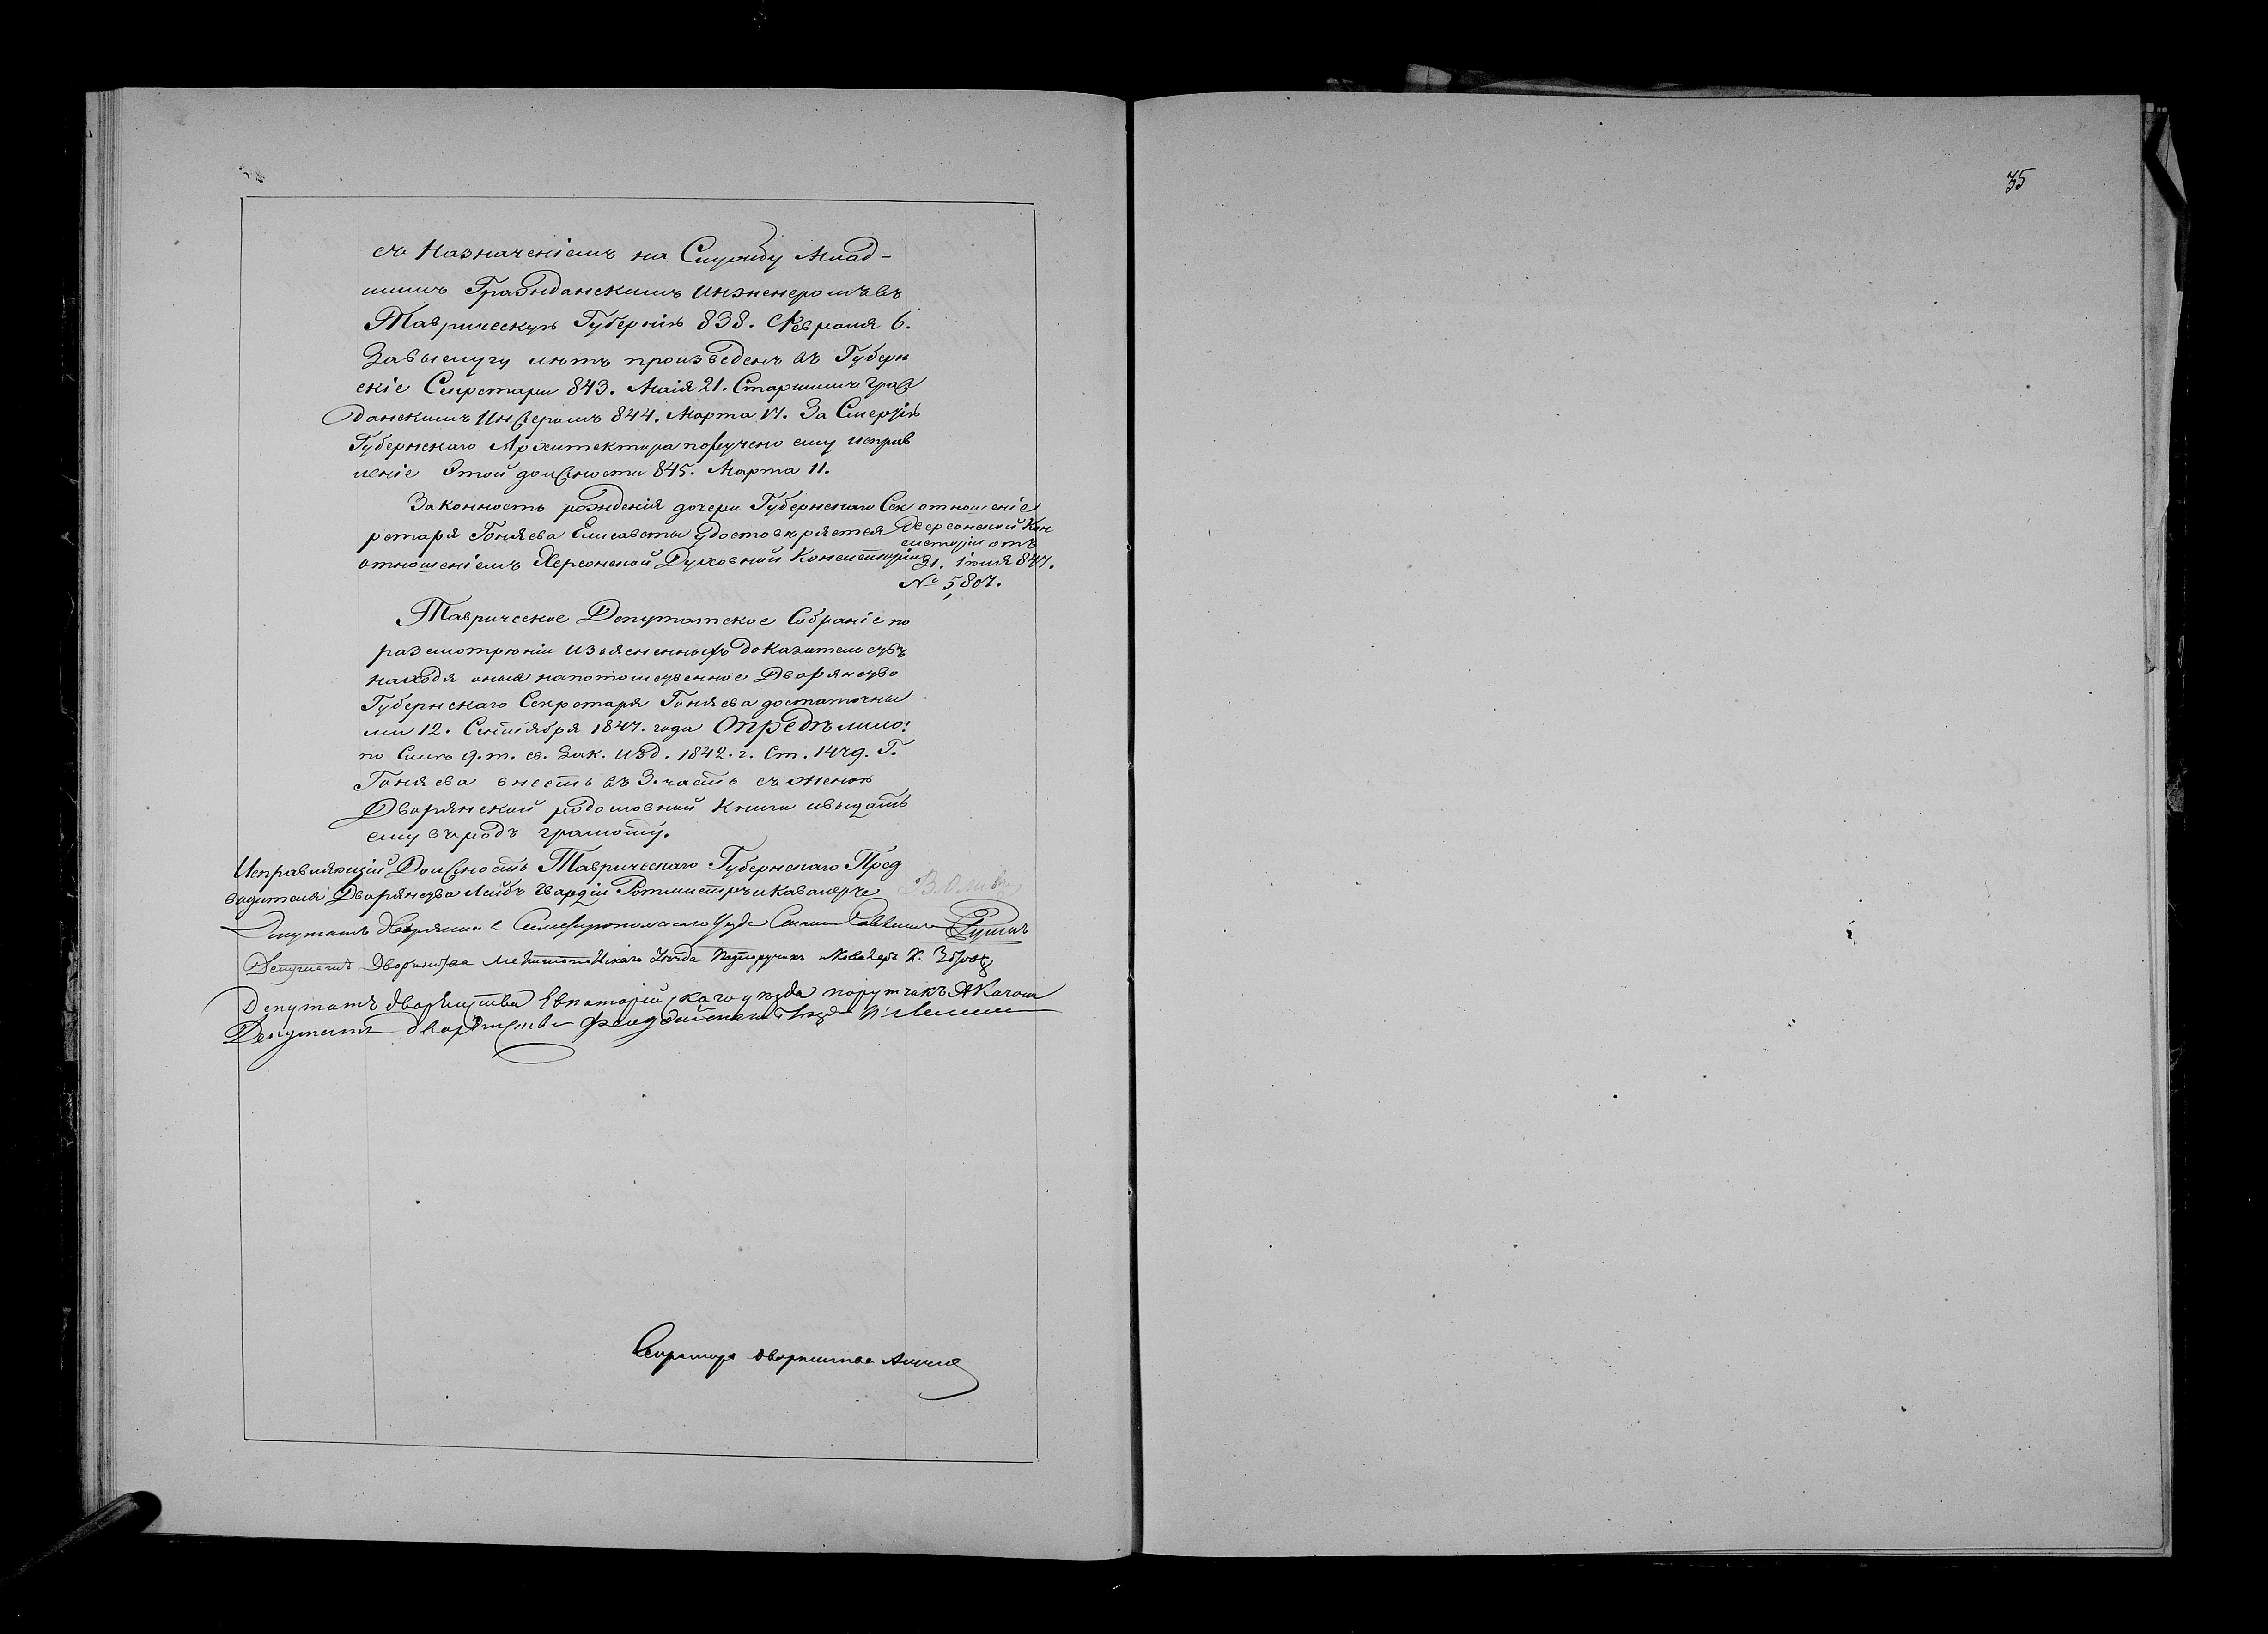 35
съ Назначеніемъ на Службу Млад-
шимъ Гражданскимъ Инженеромъ въ
Таврическую Губернію 838. Февраля 6.
За выслугу лѣтъ произведенъ въ Губерн
скіе Секретари 843. Маія 21. Старшимъ Граж
данскимъ Инженеромъ 844. Марта 17. За Смертію
Губернскаго Архитектора поручено ему исправ
леніе Этой должности 845. Марта 11.
Законность рожденія дочери Губернскаго Сек
ретаря Гоняева Елисаветы Удостовѣряется
отношеніемъ Херсонской Духовной Консисторіи
отношеніе
Херсонской Кон
систоріи отъ
21. іюля 847.
№ 5,807.
Таврическое Депутатское Собраніе по
разсмотрѣніи изъясненныхъ доказательствъ
находя оныя на потомственное Дворянство
Губернскаго Секретаря Гоняева достаточны
ми 12. Сентября 1847. года Опредѣлило:
по Силѣ 9. т. св. Зак. изд. 1842. г. Ст. 1479. Г.
Гоняева внесть въ 3. часть съ женою
Дворянской родословной Книги и выдать
ему въ родъ грамоту.
Исправляющій Должность Таврическаго Губернскаго Пред
водителя Дворянства Лейбъ Гвардіи Ротмистръ и Кавалеръ В. Олив
Депутатъ Дворянства Симферопольскаго Уѣзда
Депутатъ Дворянства Мелитопольскаго Уѣзда Подпоручикъ и Кавалеръ К.
Депутатъ дворянства Евпаторійскаго уѣзда поручикъ А Качони
Депутатъ дворянства Феодосійскаго Уѣзда
Секретарь дворянства